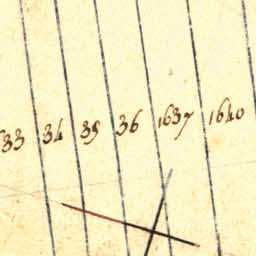 33 34 35 36 1637 1640